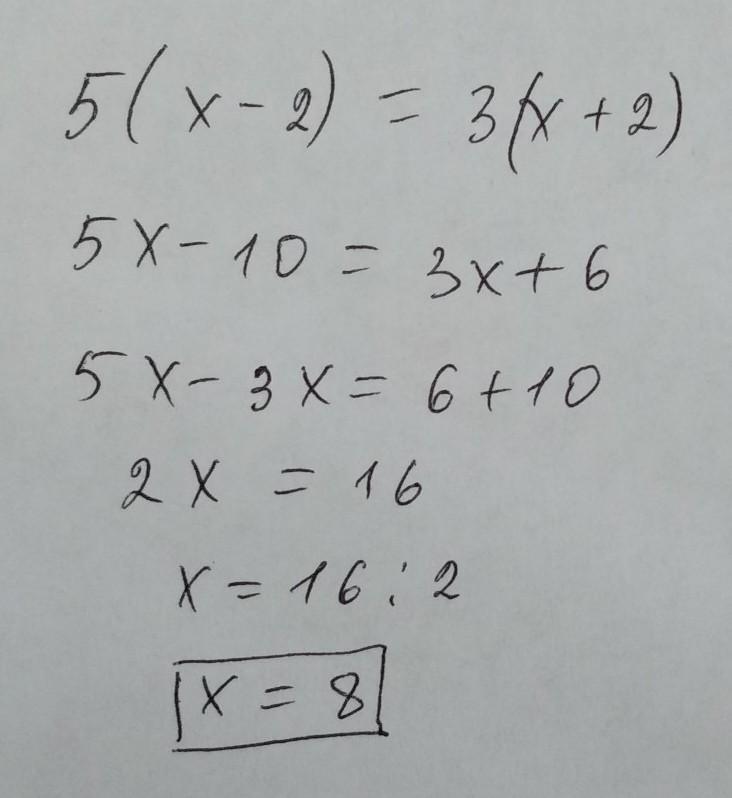 5(x - 2) = 3(x + 2)
5x - 10 = 3x + 6
5x - 3x = 6 + 10
2x = 16
x = 16 : 2
x = 8